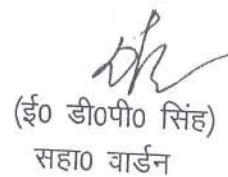 (ई० डी०पी० सिंह)
सहा० वार्डन